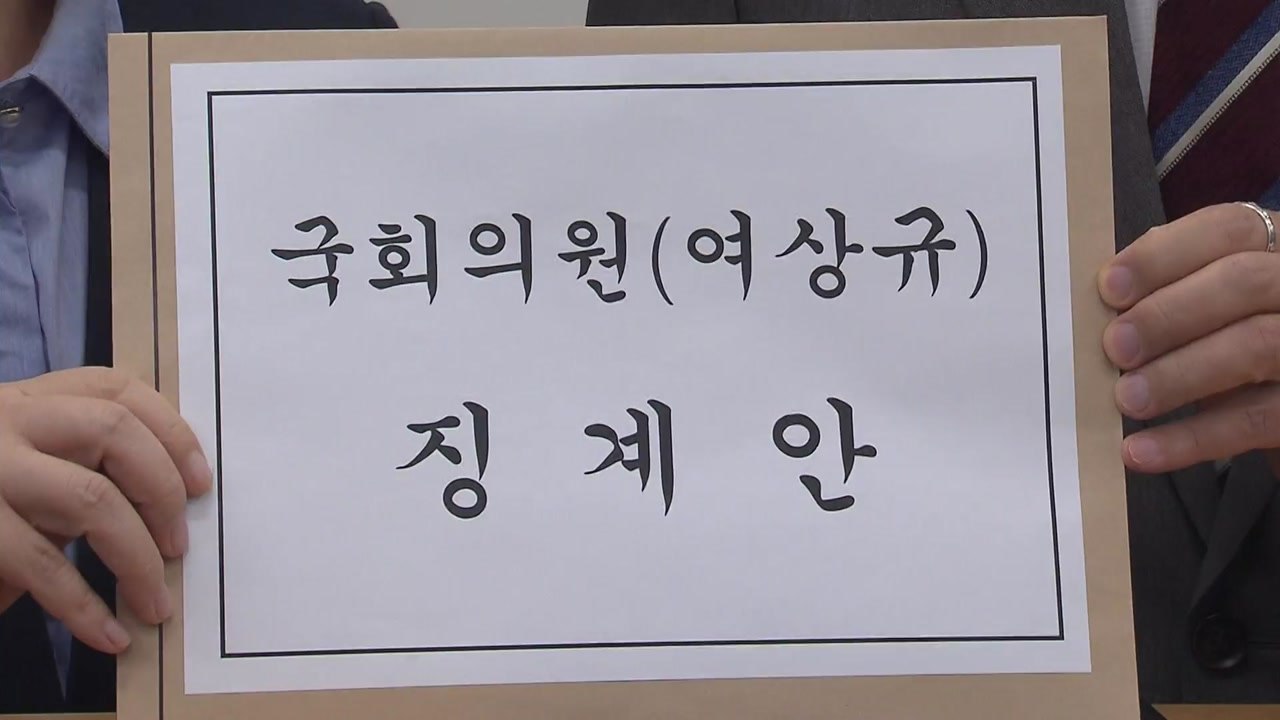 국회의원(여상규)
징 계 안